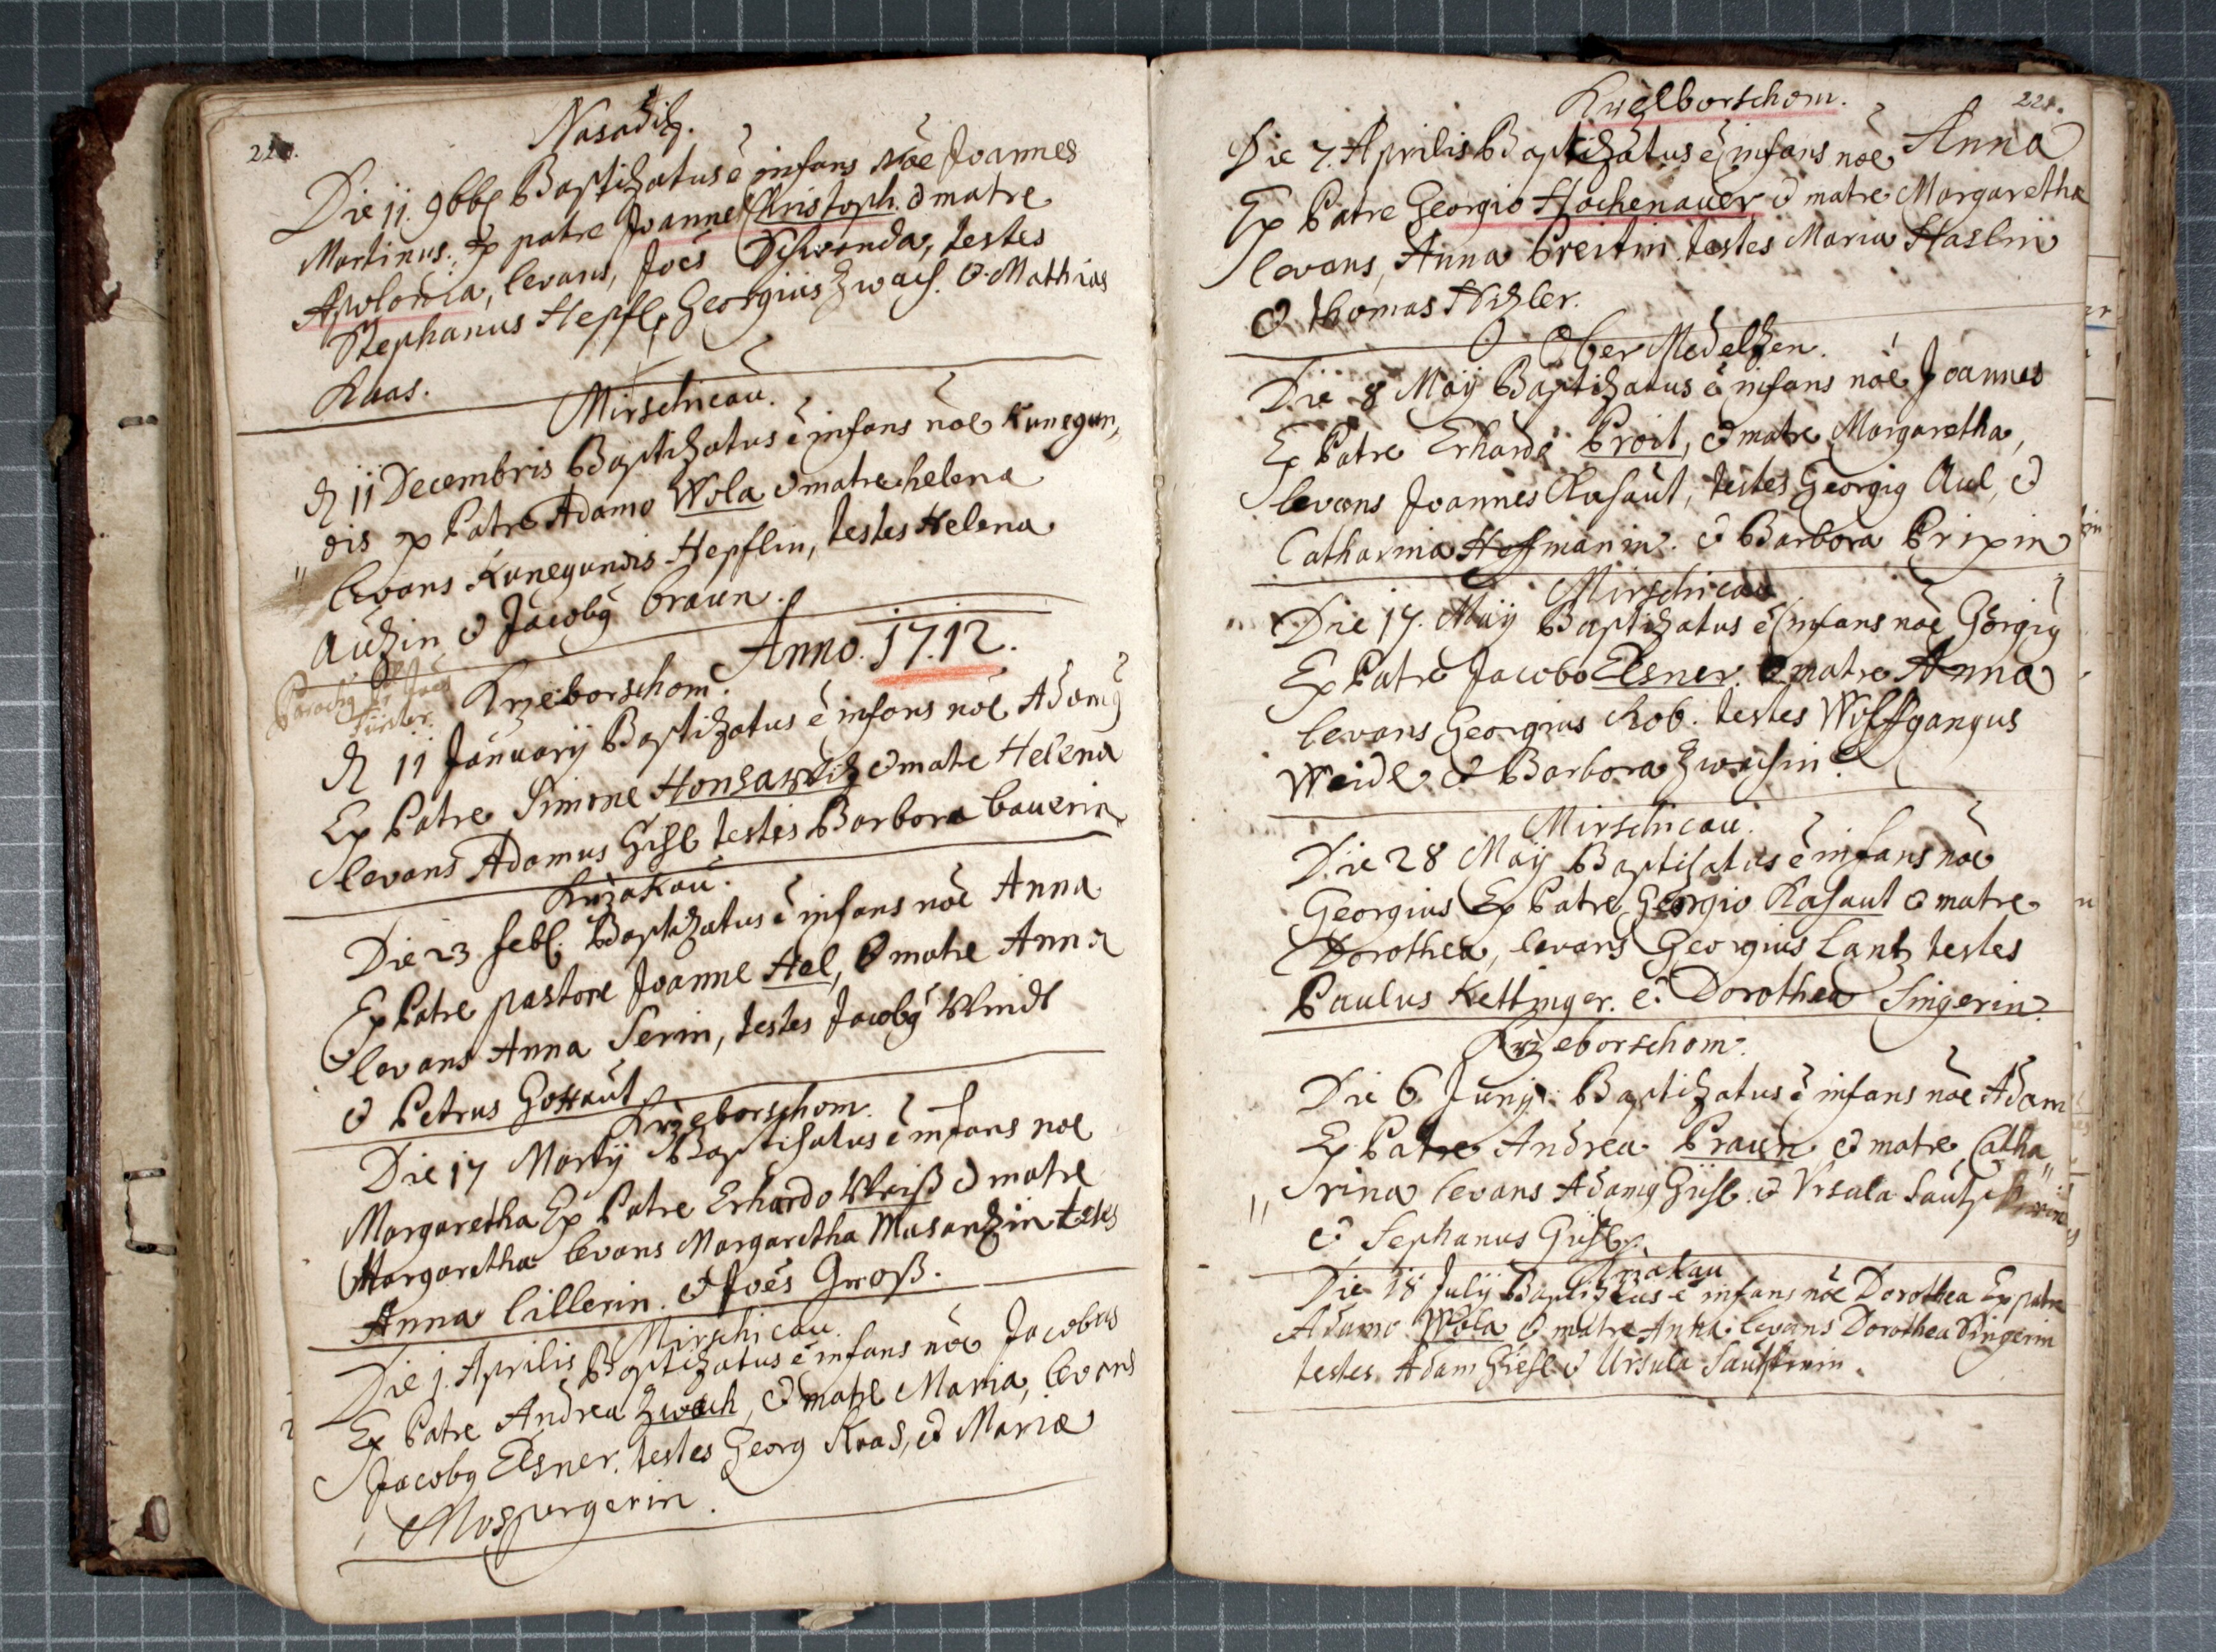 Nasaditz.
Die 11. 9bbr Baptizatus ẽ infans nõe Joannes
Martinus. ex patre Joanne Christoph. & matre
Apolonia, levans, Joẽs Schwnda, testes
Stephanus Hepfl, Georgius Zwach. & Mathias
Kaas.
Mirschicau.
D 11 Decembris Baptizatus ẽ infans nõe Kunegun,,
,,dis ex Patre Adamo Wola & matre helena
levans Kunegundis Hepflin, testes Helena
Autzin & Jacobg braun.
Anno. 1712.
Parochg Joẽs
Krzeborschom.
D 11 Januarij Baptizatus ẽ infans nõe Adamg
Ex Patre Simone Honsawitz & mate Helena
levans Adamus Gisl testes Barbora bauerin
Krzakau.
Die 23 febr. Baptizatus ẽ infans nõe Anna
Ex Patre pastore Joanne Hel, & matre Anna
levans Anna Serin, testes Jacobg Windt
& Petrus Gottaut
Krzeborschom.
Die 17 Martij Baptisatus ẽ infans noe
Margaretha Ex Patre Erhardo Weiß & matre
Margaretha levans Margaretha Masanzin testes
Anna lillerin. & Joẽs Groß.
Mirschicau.
Die 1. Aprilis Baptizatus ẽ infans nõe Jacobus
Ex Patre Andrea Zwach, & matre Maria, levans
Jacobg Elsner. testes Georg Kaas, & Maria
Mospurgerin.
Krzeborschom.
221.
Die 7. Aprilis Baptizatus ẽ infans nõe Anna
Ex Patre Georgio Hochenauer & matre Margaretha
levans, Anna Preitin. testes Maria Haslin
& thomas Hitzler.
Ober Medelzen.
Die 8 Maij Baptizatus ẽ infans nõe Joannes
Ex Patre Erhardg Proit, & matre Margaretha,
levans Joannes Kasaut, testes Georgig Aul, &
Catharina Hofmanin. & Barbora Pripin
Mirschicau
Die 17. Maij Baptizatus ẽ infans nõe Gorgig
Ex Patre Jacobo Elsner. & matre Anna
levans Georgius Kob. testes Wolffgangus
Weidl & Barbora Zwachin.
Mirschicau.
Die 28 Maij Baptisatus ẽ infans nõe
Georgius Ex Patre Georgio Kasaut & matre
Dorothea, levans Georgius Lantz testes
Paulus Kettinger. & Dorothea Singerin.
Krzeborschom.
Die 6 Junij. Baptizatus ẽ infans nõe Adam
Ex Patre Andrea Praun & matre Catha,,
,,rina levans Adamg Gisl. & Vrsula
& Sephanus Gisl.
Krzakau
Die 18 Julij Baptizatus ẽ infans nõe Dorothea Ex patre
Adamo Wola & matre Anna. levans Dorothea Singerin
testes Adam Giesl & Ursula